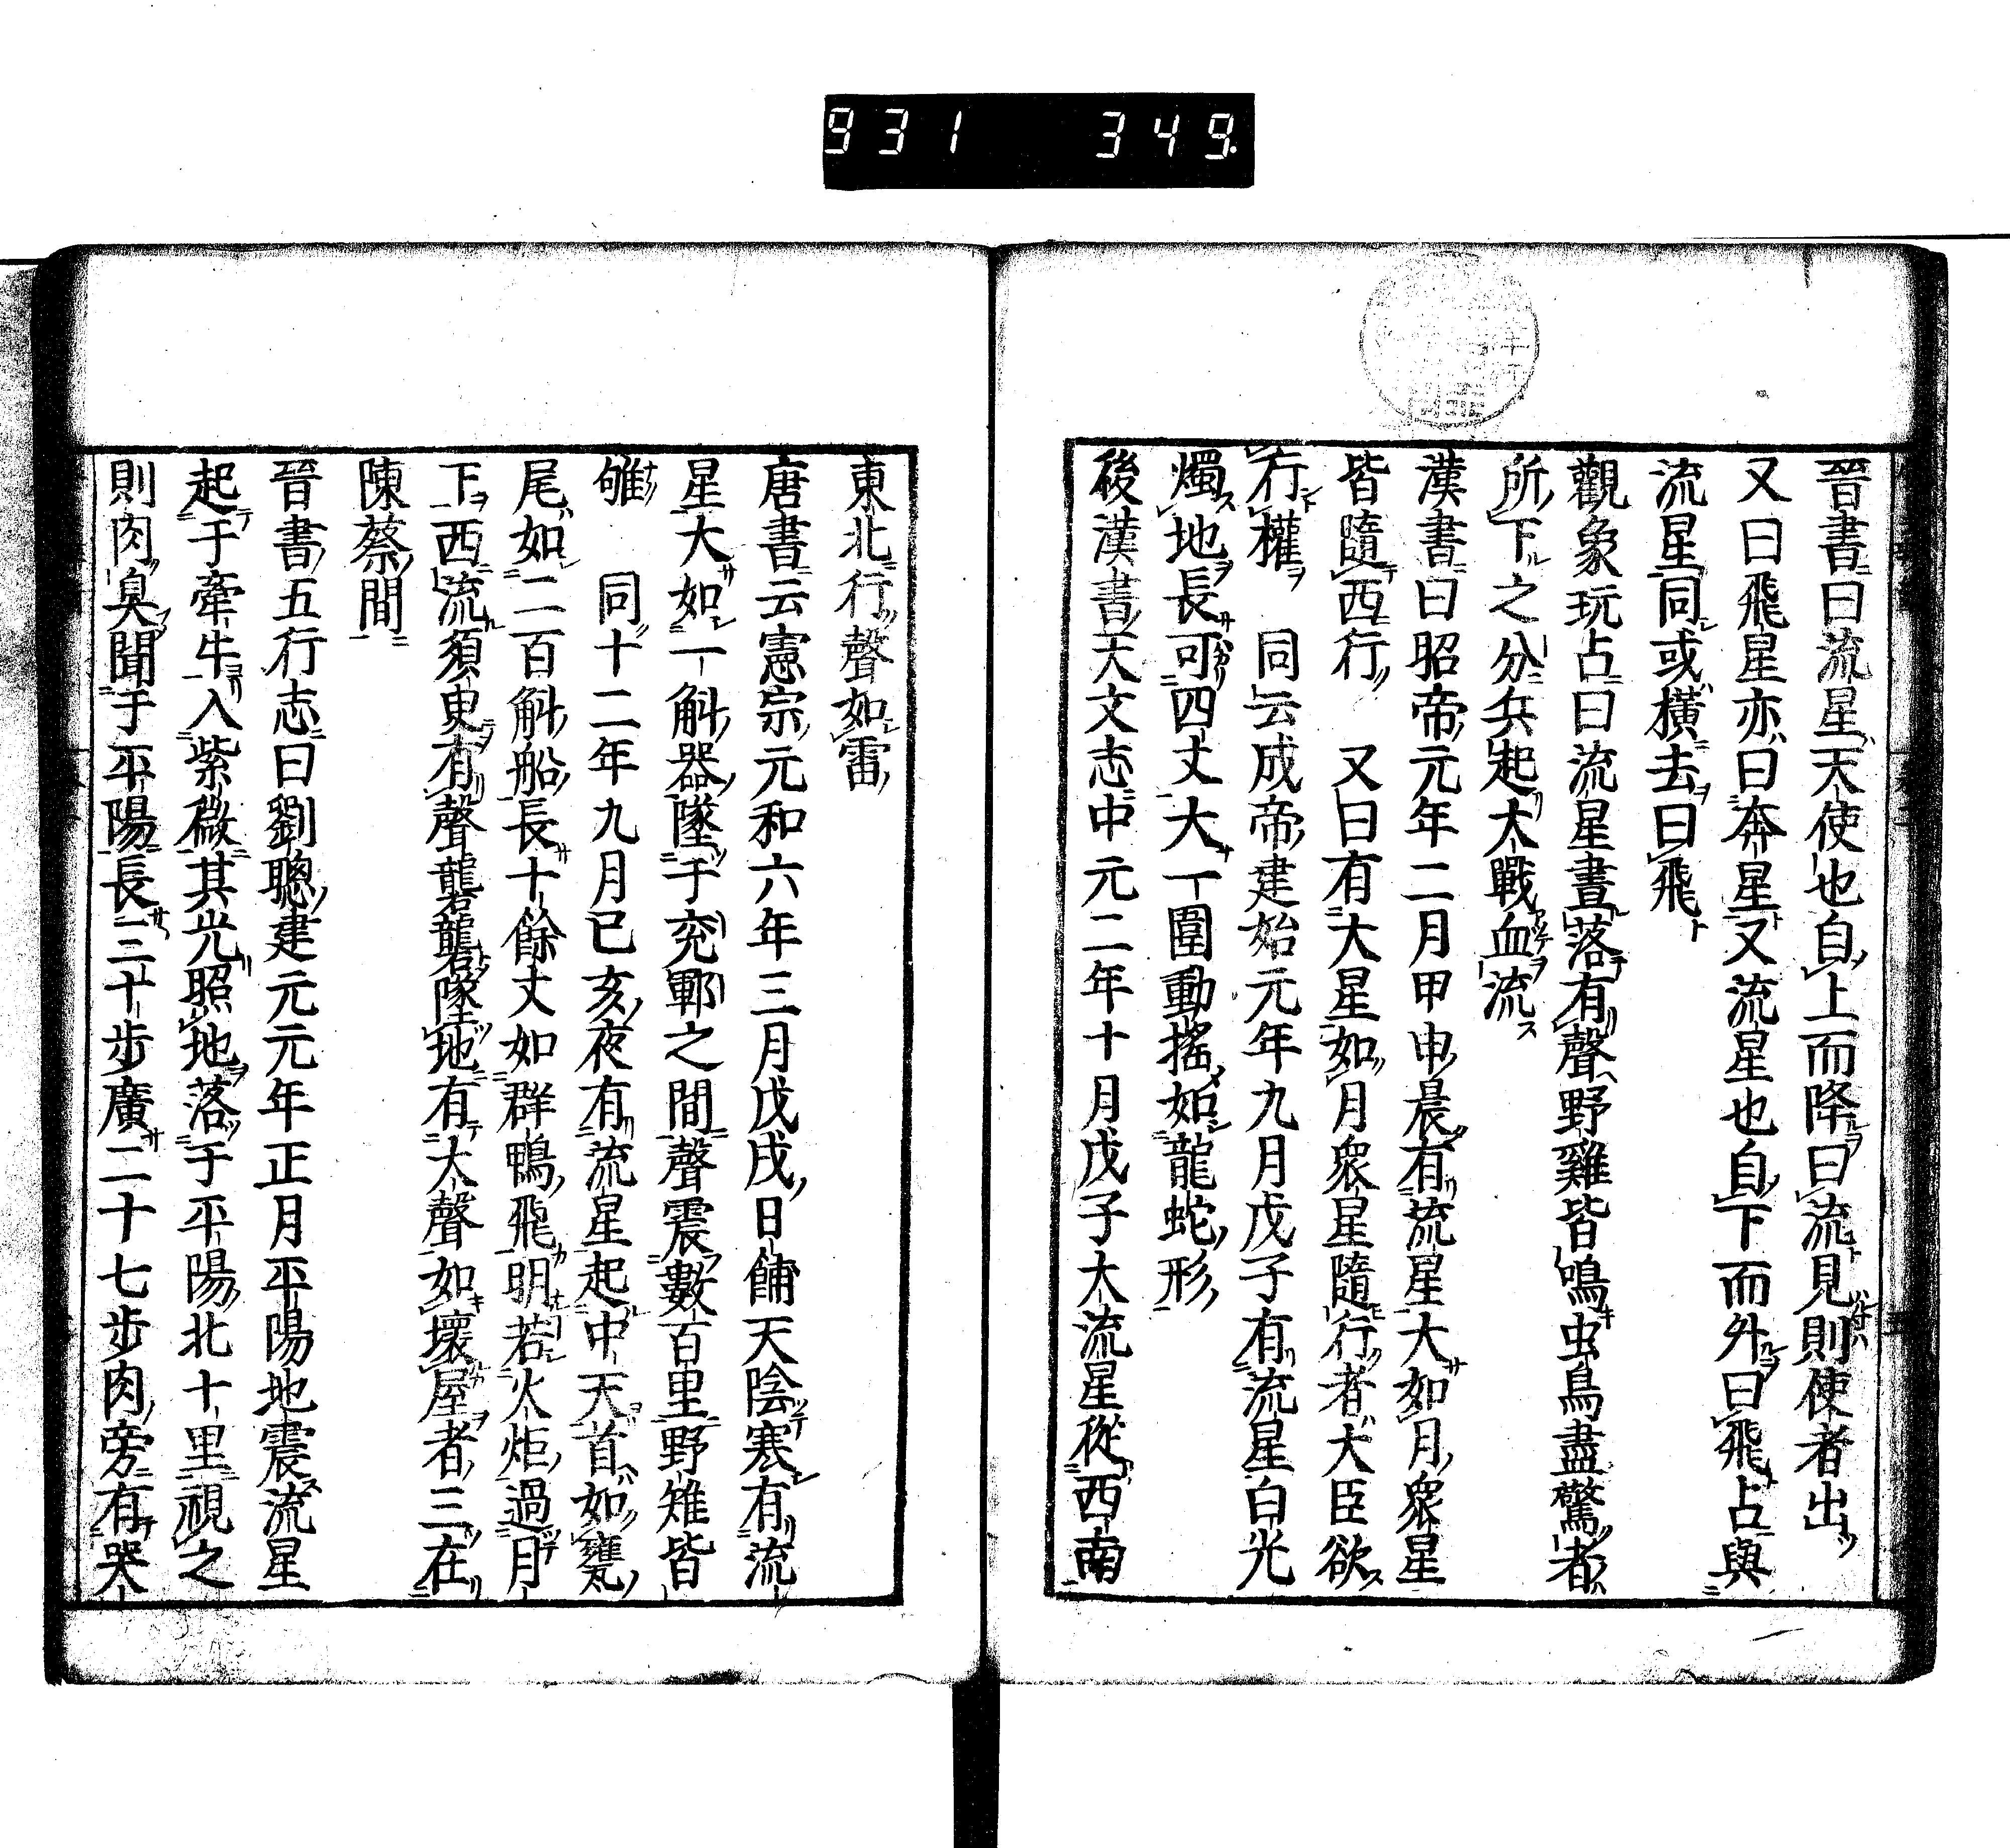 931 349
晉書曰流星天使也自上而降曰流見則使者出
又曰飛星亦曰奔星又流星也自下而外曰飛占與
流星同或橫去曰飛
觀象玩占曰流星晝落有聲野雞皆鳴虫鳥盡驚者
所下之分兵起大戰血流
漢書曰昭帝元年二月甲申晨有流星大如月眾星
皆隨西行 又曰有大星如月眾星隨行者大臣欲
行權 同云成帝建始元年九月戊子有流星白光
燭地長可四丈大一圍動搖如龍蛇形
後漢書天文志中元二年十月戊子大流星從西南
東北行聲如雷
唐書云憲宗元和六年三月戊戌日餔天陰寒有流
星大如一斛器墜于兗鄆之間聲震數百里野雉皆
雊 同十二年九月己亥夜有流星起中天首如甕
尾如二百斛船長十餘丈如群鴨飛明若火炬過月
下西流須臾有聲礱礱墜地有大聲如壞屋者三在
陳蔡間
晉書五行志曰劉聰建元元年正月平陽地震流星
起于牽牛入紫微其光照地落于平陽北十里視之
則肉臭聞于平陽長三十步廣二十七步肉旁有哭